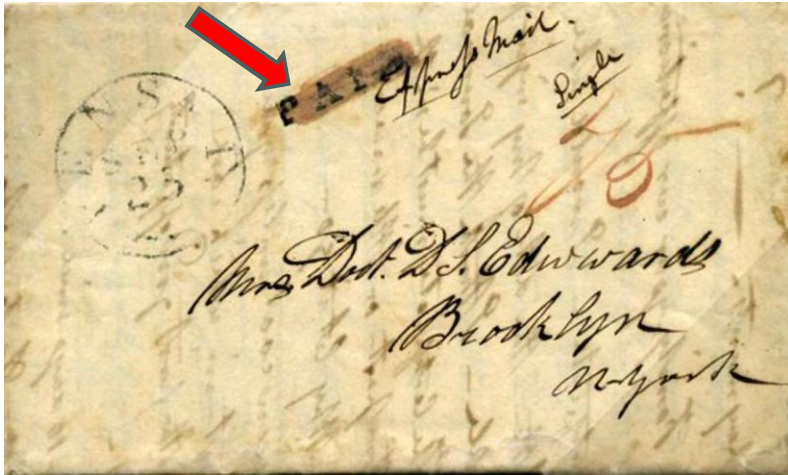 PAID
Express Mail.
Single
75
PENSA
SEP
25
Mrs Doct. D. S. Edwards
Brooklyn
N. York